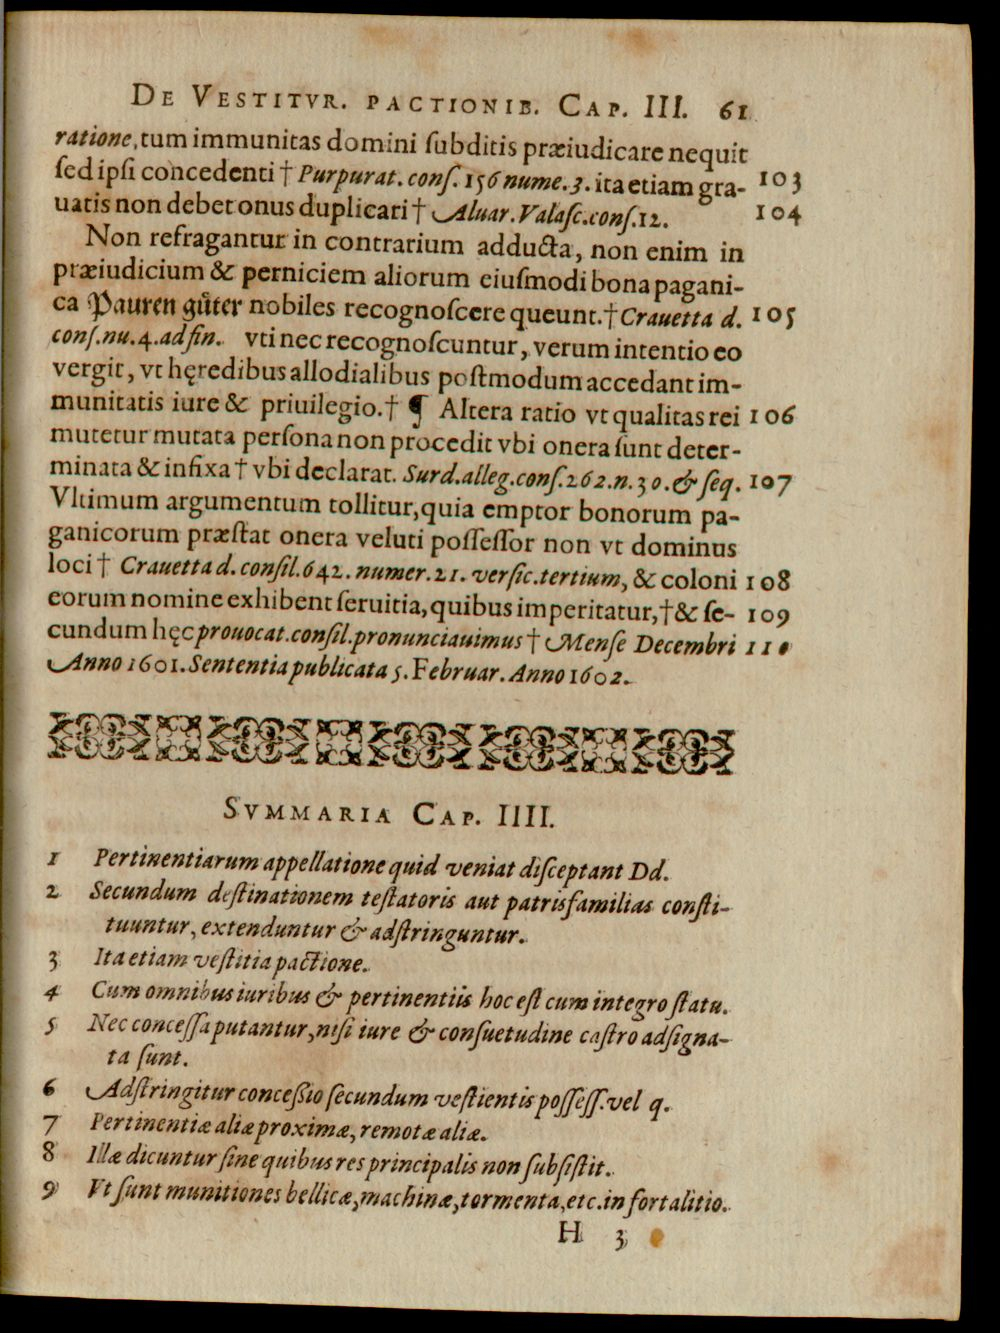 DE VESTITVR. PACTIONIB. CAP. III. 61
ratione, tum immunitas domini ſubditis præiudicare nequit
ſed ipſi concedenti † Purpurat. conſ. 156 nume. 3. ita etiam gra- 103
uatis non debet onus duplicari † Aluar. Valaſc. conſ. 12. 104
Non refragantur in contrarium adducta, non enim in
præiudicium & perniciem aliorum eiuſmodi bona pagani-
ca Pauren gůter nobiles recognoſcere queunt. † Crauetta d. 105
conſ. nu. 4. ad fin. vti nec recognoſcuntur, verum intentio eo
vergit, vt hęredibus allodialibus poſtmodum accedant im-
munitatis iure & priuilegio. † ¶ Altera ratio vt qualitas rei 106
mutetur mutata perſona non procedit vbi onera ſunt deter-
minata & infixa † vbi declarat. Surd. alleg. conſ. 262. n. 30. & ſeq. 107
Vltimum argumentum tollitur, quia emptor bonorum pa-
ganicorum præſtat onera veluti poſſeſſor non vt dominus
loci † Crauetta d. conſil. 642. numer. 21. verſic. tertium, & coloni 108
eorum nomine exhibent ſeruitia, quibus imperitatur, † & ſe- 109
cundum hęc prouocat. conſil. pronunciauimus † Menſe Decembri 110
Anno 1601. Sententia publicata 5. Februar. Anno 1602.
SVMMARIA CAP. IIII.
1 Pertinentiarum appellatione quid veniat diſceptant Dd.
2 Secundum deſtinationem teſtatoris aut patrisfamilias conſti-
tuuntur, extenduntur & adſtringuntur.
3 Ita etiam veſtitia pactione.
4 Cum omnibus iuribus & pertinentiis hoc eſt cum integro ſtatu.
5 Nec conceſſa putantur, niſi iure & conſuetudine caſtro adſigna-
ta ſunt.
6 Adſtringitur conceſſio ſecundum veſtientis poſſeſſ. vel q.
7 Pertinentiæ aliæ proximæ, remotæ aliæ.
8 Illæ dicuntur ſine quibus res principalis non ſubſiſtit.
9 Vt ſunt munitiones bellicæ, machinæ, tormenta, etc. in fortalitio.
H 3